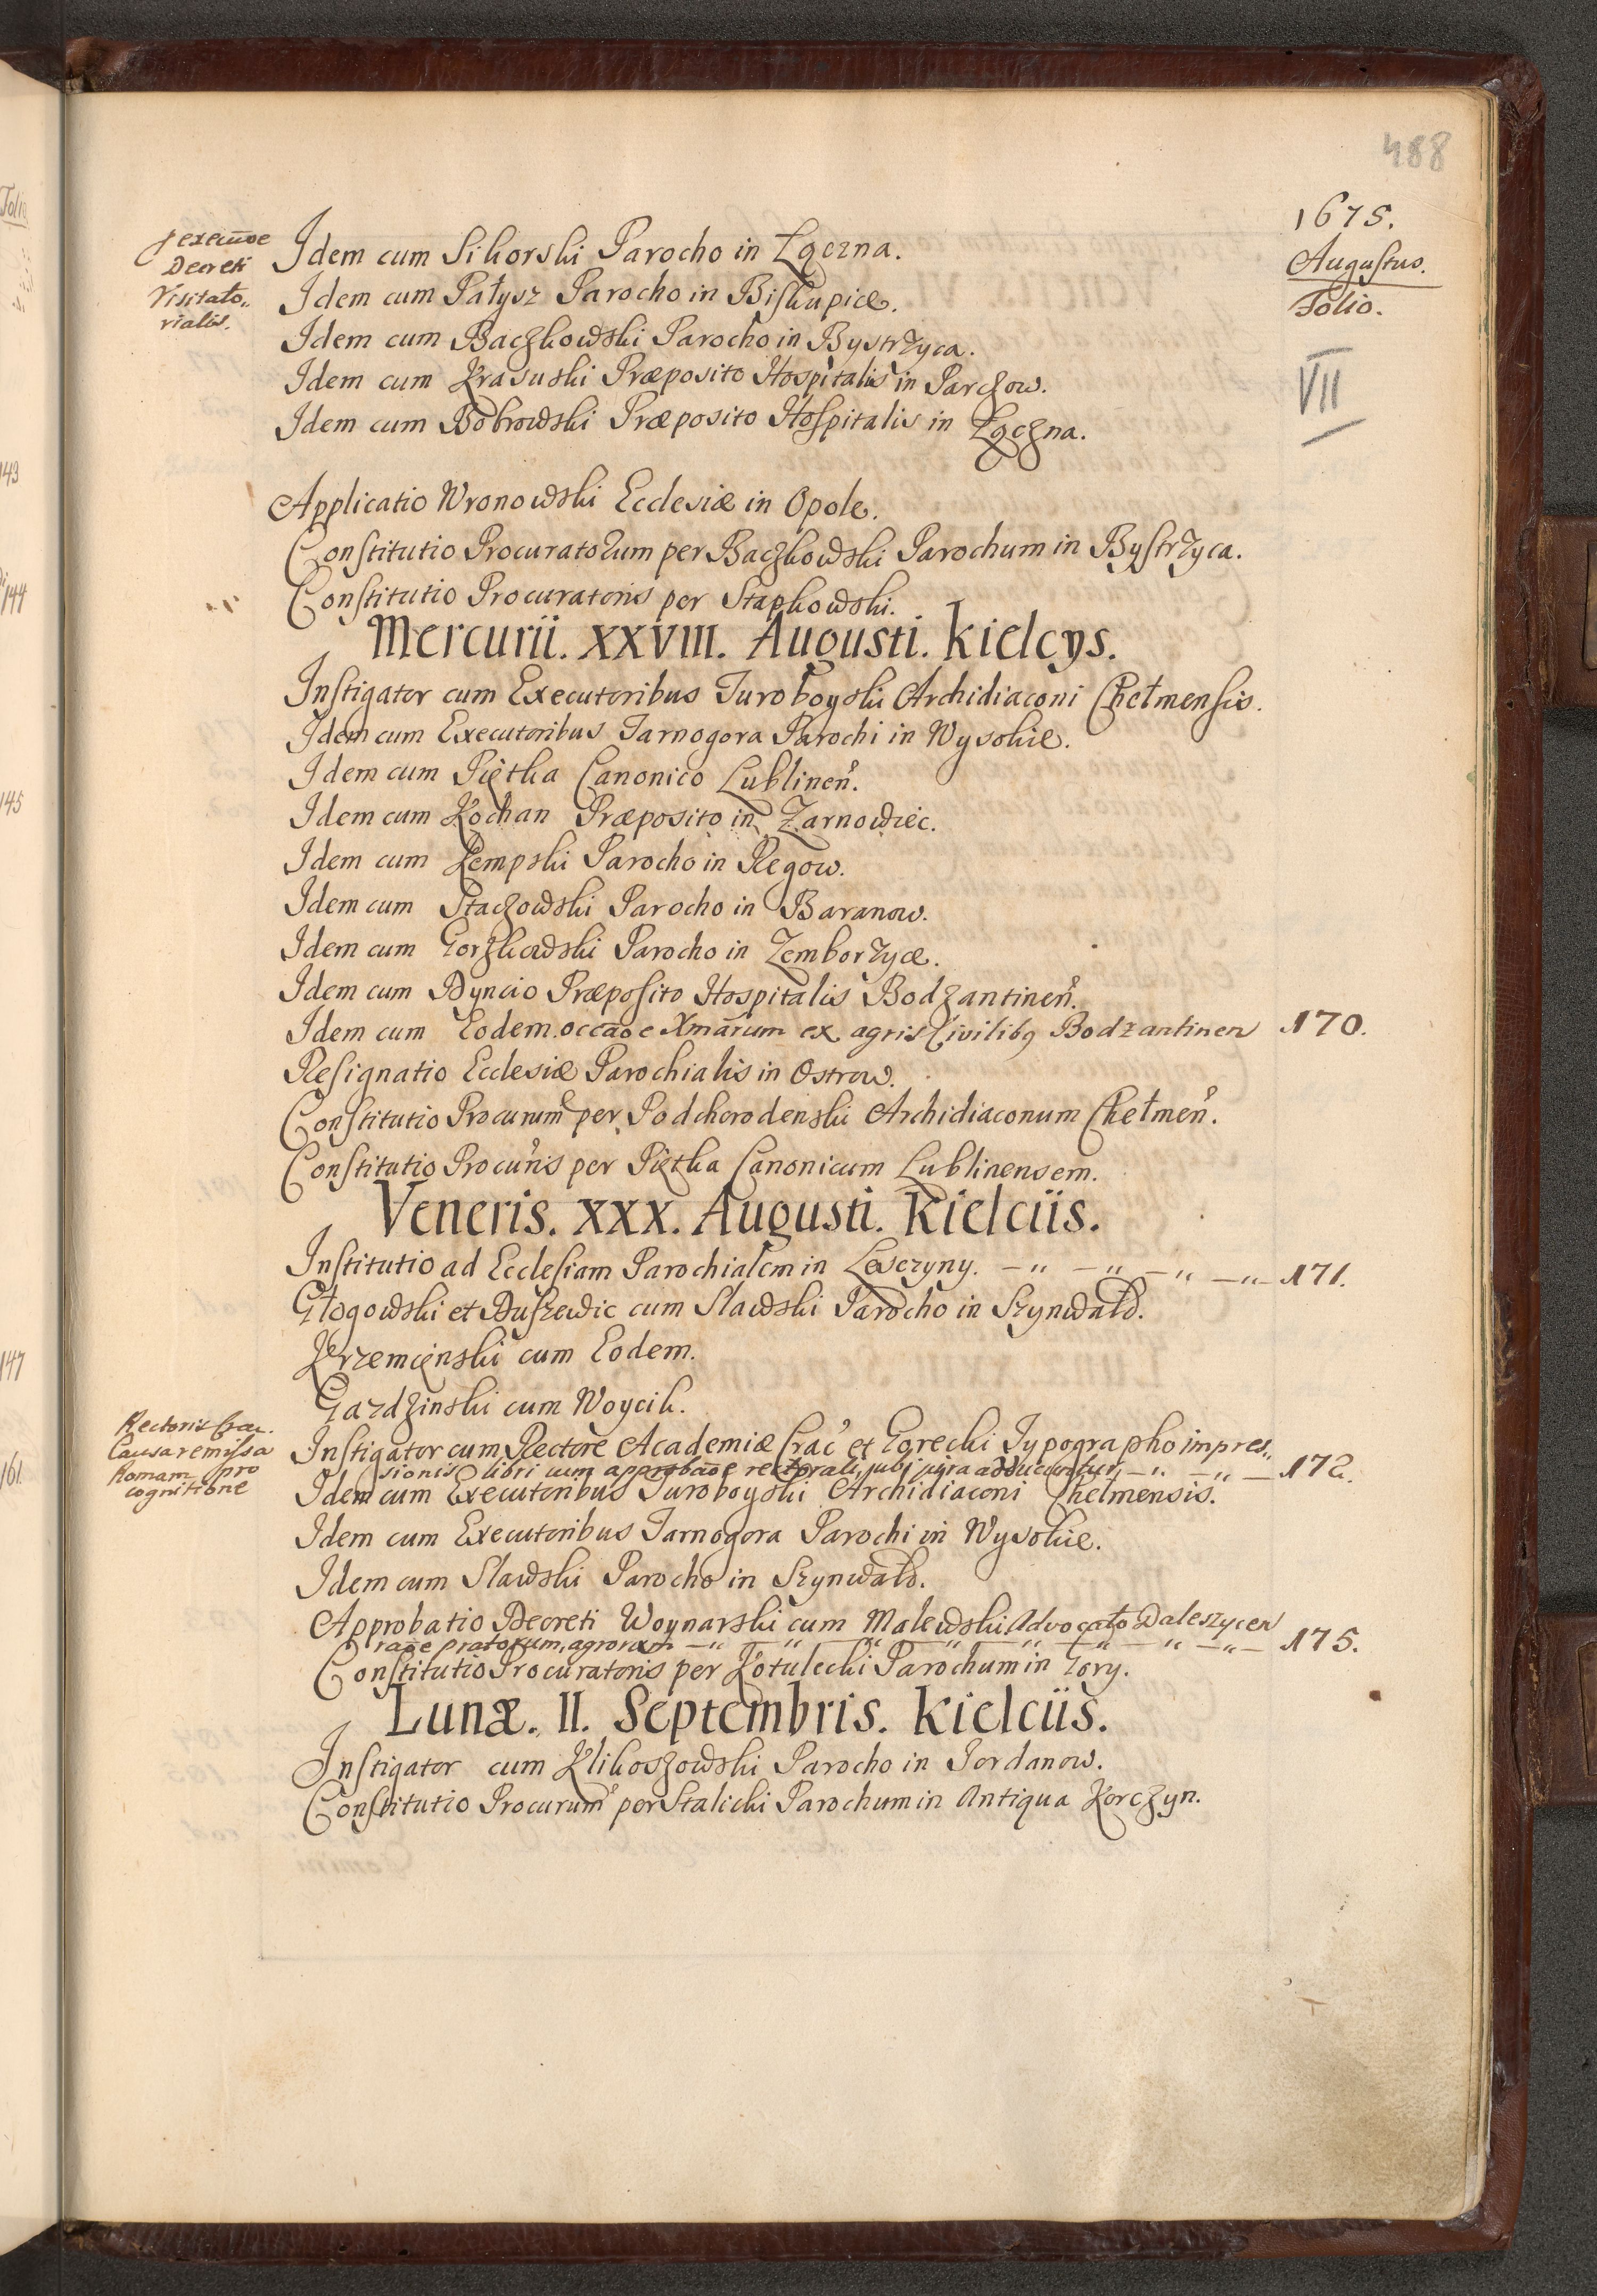 488
1675.
Augustus.
Folio.
VII
Decreti
Visitato„
rialis.
Idem cum Sikorski Parocho in Łęczna.
Idem cum Pałysz Parocho in Biskupice.
Idem cum Baczkowski Parocho in Bystrzyca.
Idem cum Krasuski Præposito Hospitalis in Parczow.
Idem cum Bobrowski Præposito Hospitalis in Łęczna.
Applicatio Wronowski Ecclesiæ in Opole.
Constitutio Procuratorum per Baczkowski Parochum in Bystrzyca.
Constitutio Procuratoris per Stapkowski.
Mercurii. XXVIII. Augusti. Kielcys.
Instigator cum Executoribus Turoboyski Archidiaconi Chełmensis.
Idem cum Executoribus Tarnogora Parochi in Wysokie.
Idem cum Piętka Canonico Lublinen̄.
Idem cum Kochan Præposito in Żarnowiec.
Idem cum Kempski Parocho in Regow.
Idem cum Staczowski Parocho in Baranow.
Idem cum Gorzkowski Parocho in Zemborzyce.
Idem cum Dyncio Præposito Hospitalis Bodzantinen̄.
Idem cum Eodem occāoe Xmārum ex agris Civilibꝯ Bodzantinen 170.
Resignatio Ecclesiæ Parochialis in Ostrow.
Constitutio Procurum̄ per Podchorodenski Archidiaconum Chełmen̄.
Constitutio Procūris per Piętka Canonicum Lublinensem.
Veneris. XXX. Augusti. Kielciis.
Institutio ad Ecclesiam Parochialem in Leszczyny. —„ —„ —„ —„— 171.
Głogowski et Duszewic cum Slawski Parocho in Szynwałd.
Krzemięnski cum Eodem.
Gardzinski cum Woycik.
Rectoris Crac.
Causa remissa
Romam pro
cognitione
Instigator cum Rectore Academiæ Crac̄ et Gorecki Typographo impres„
sionis libri cum approbāoe rectorali, ubi jura adducuntur, —„ —„ — 172.
Idem cum Executoribus Turoboyski Archidiaconi Chelmensis.
Idem cum Executoribus Tarnogora Parochi in Wysokie.
Idem cum Slawski Parocho in Szynwałd.
Approbatio Decreti Woynarski cum Malewski Advocato Daleszycen
raoe pratorum, agrorum —„ —„ —„ —„ —„ —„ —„ —„— 175.
Constitutio Procuratoris per Kotulecki Parochum in Gory.
Lunæ. II. Septembris. Kielciis.
Instigator cum Klikoszowski Parocho in Jordanow.
Constitutio Procurum̄ per Stalicki Parochum in Antiqua Korczyn.